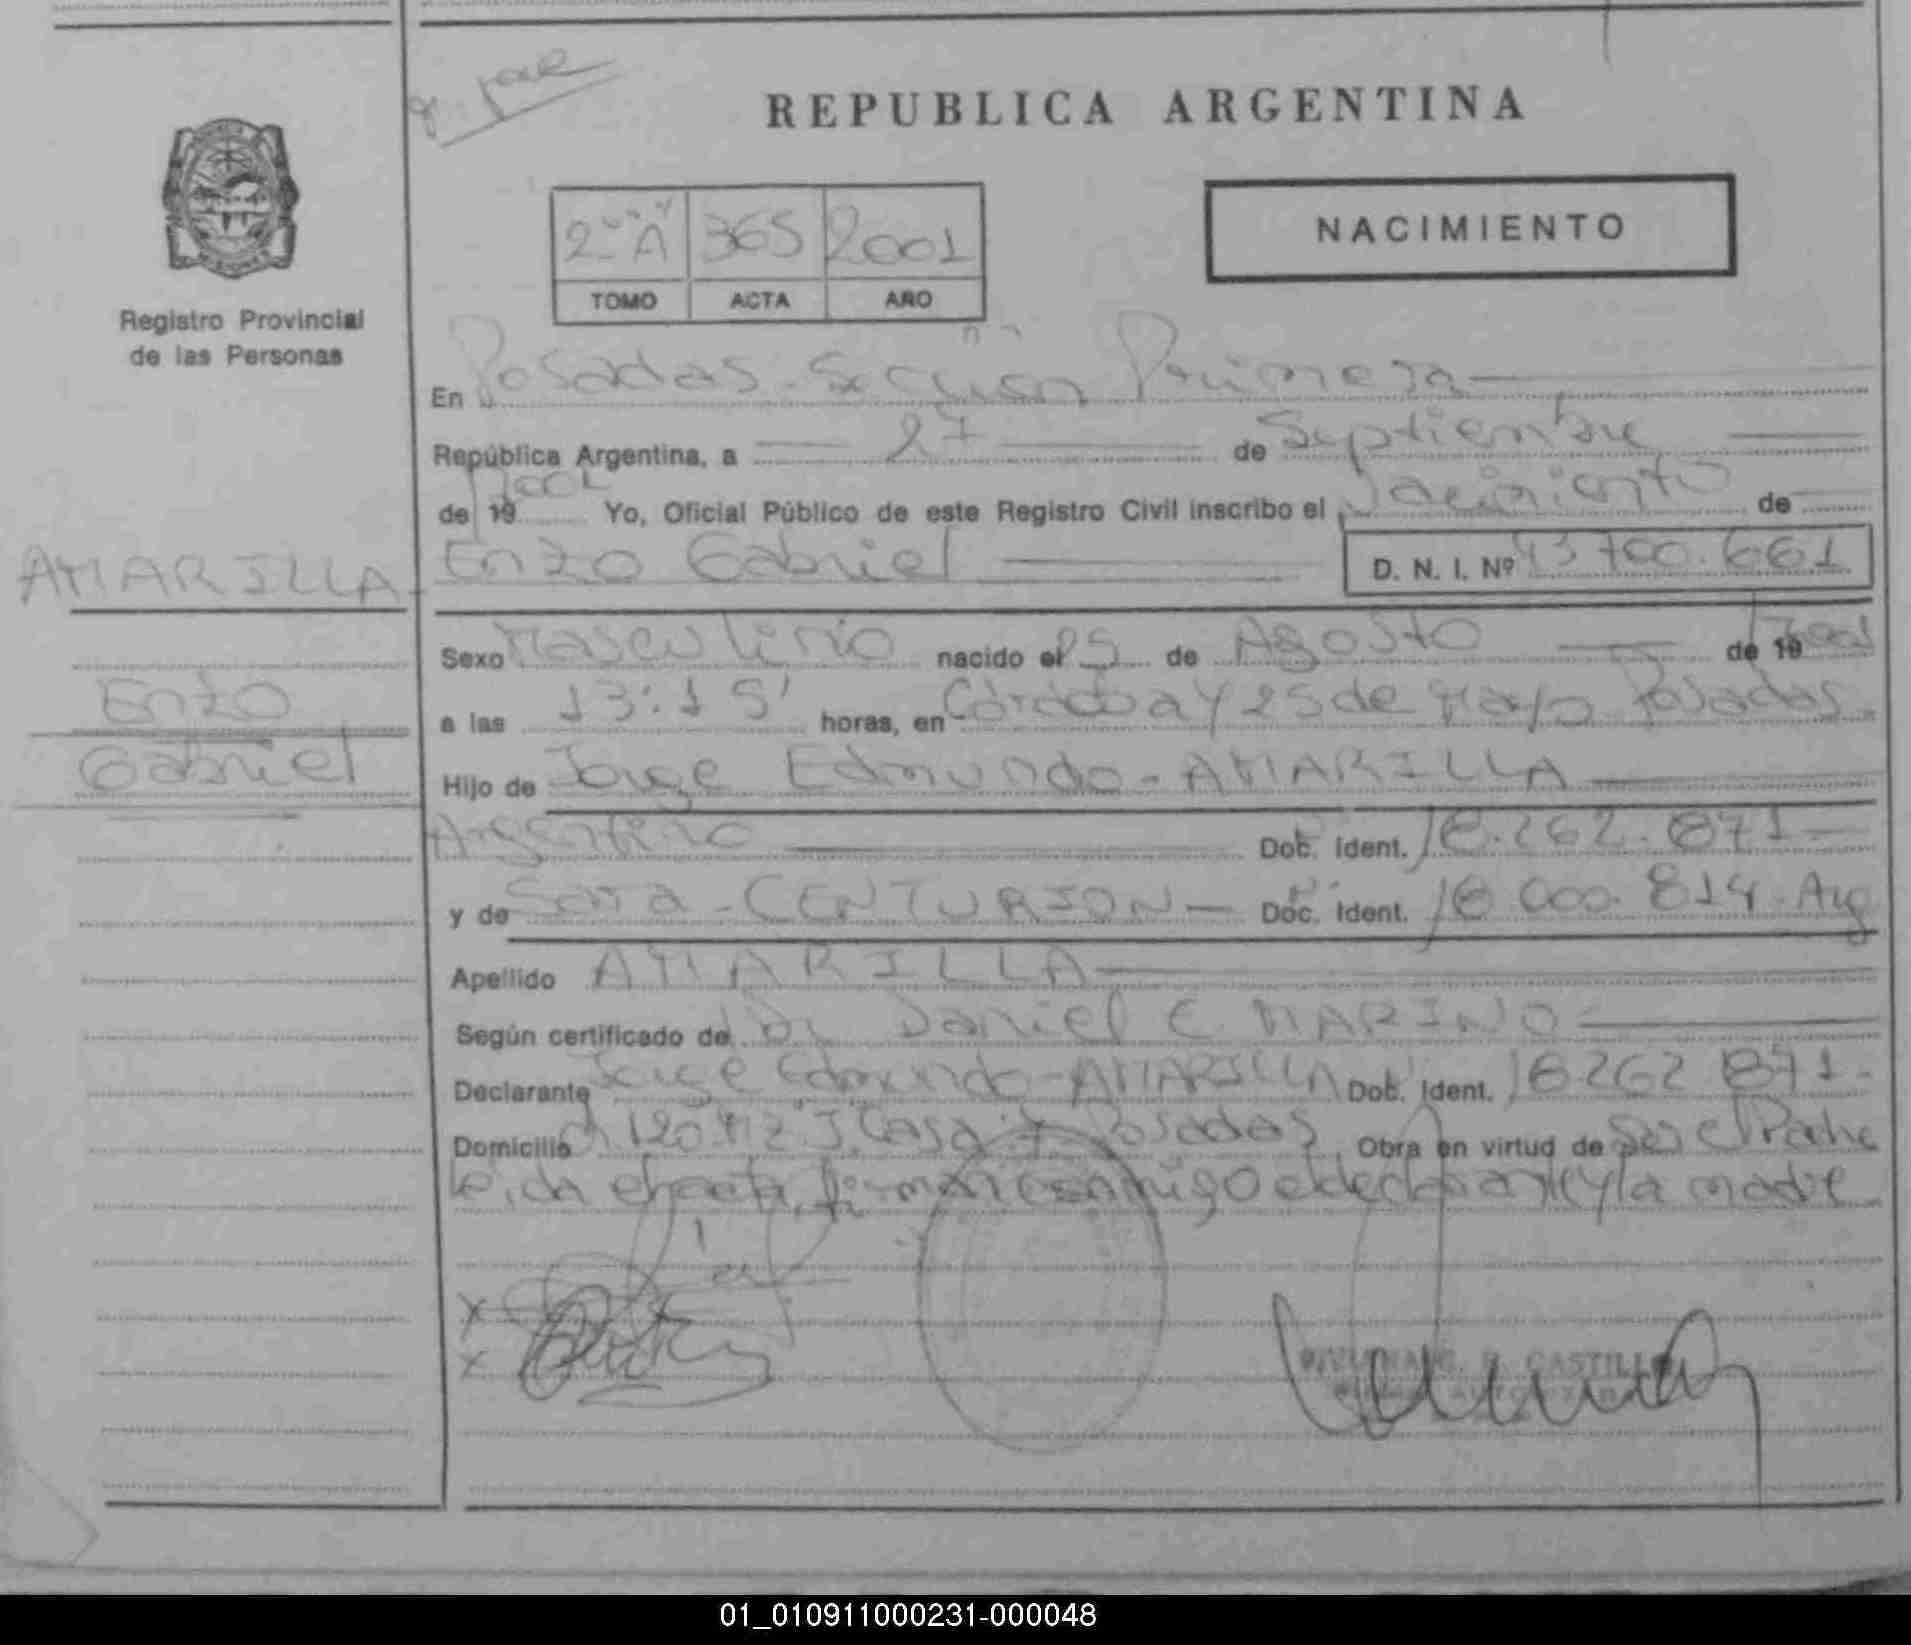 REPUBLICA ARGENTINA
2º "A" 365 2001
TOMO ACTA AÑO
NACIMIENTO
Registro Provincial
de las Personas
En Posadas Sección Primera
República Argentina, a 27 de Septiembre
de 19 2001 Yo, Oficial Público de este Registro Civil inscribo el Nacimiento de
AMARILLA
Enzo Gabriel D. N. I. Nº 43 700.661
Enzo
Gabriel
Sexo Masculino nacido el 25 de Agosto de 19 2001
a las 13:15' horas, en Córdoba y 25 de Mayo Posadas
Hijo de Jorge Edmundo - AMARILLA
Argentino Doc. Ident. 18.262.871
y de Sara - CENTURION Doc. Ident. 18 000 814 - Arg
Apellido AMARILLA
Según certificado de Dr Daniel C. MARINO
Declarante Jorge Edmundo - AMARILLA Doc. Ident. 18262 871
Domicilio Ch 120 Mz J Casa Posadas Obra en virtud de Ser el Padre
leida el acta, firman conmigo el declarante y la madre
X
X
CASTILLO
01_010911000231-000048